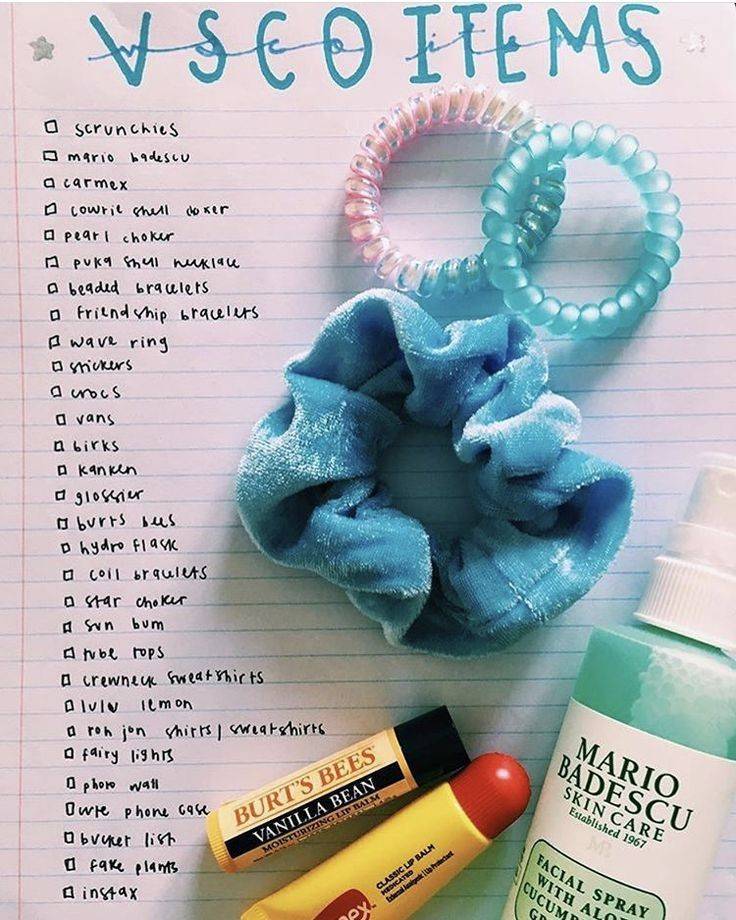 VSCO ITEMS
vsco items
scrunchies
mario badescu
carmex
cowrie shell choker
pearl choker
puka shell necklace
beaded bracelets
friendship bracelets
wave ring
stickers
crocs
vans
birks
kanken
glossier
burts bees
hydro flask
coil bracelets
star choker
sun bum
tube tops
crewneck sweatshirts
lulu lemon
ron jon shirts / sweatshirts
fairy lights
photo wall
cute phone case
bucket list
fake plants
instax
BURT'S BEES
VANILLA BEAN
MOISTURIZING LIP BALM
CLASSIC LIP BALM
MEDICATED
External Analgesic / Lip Protectant
ex
MARIO
BADESCU
SKIN CARE
Established 1967
MB
FACIAL SPRAY
WITH ALO
CUCUM
G